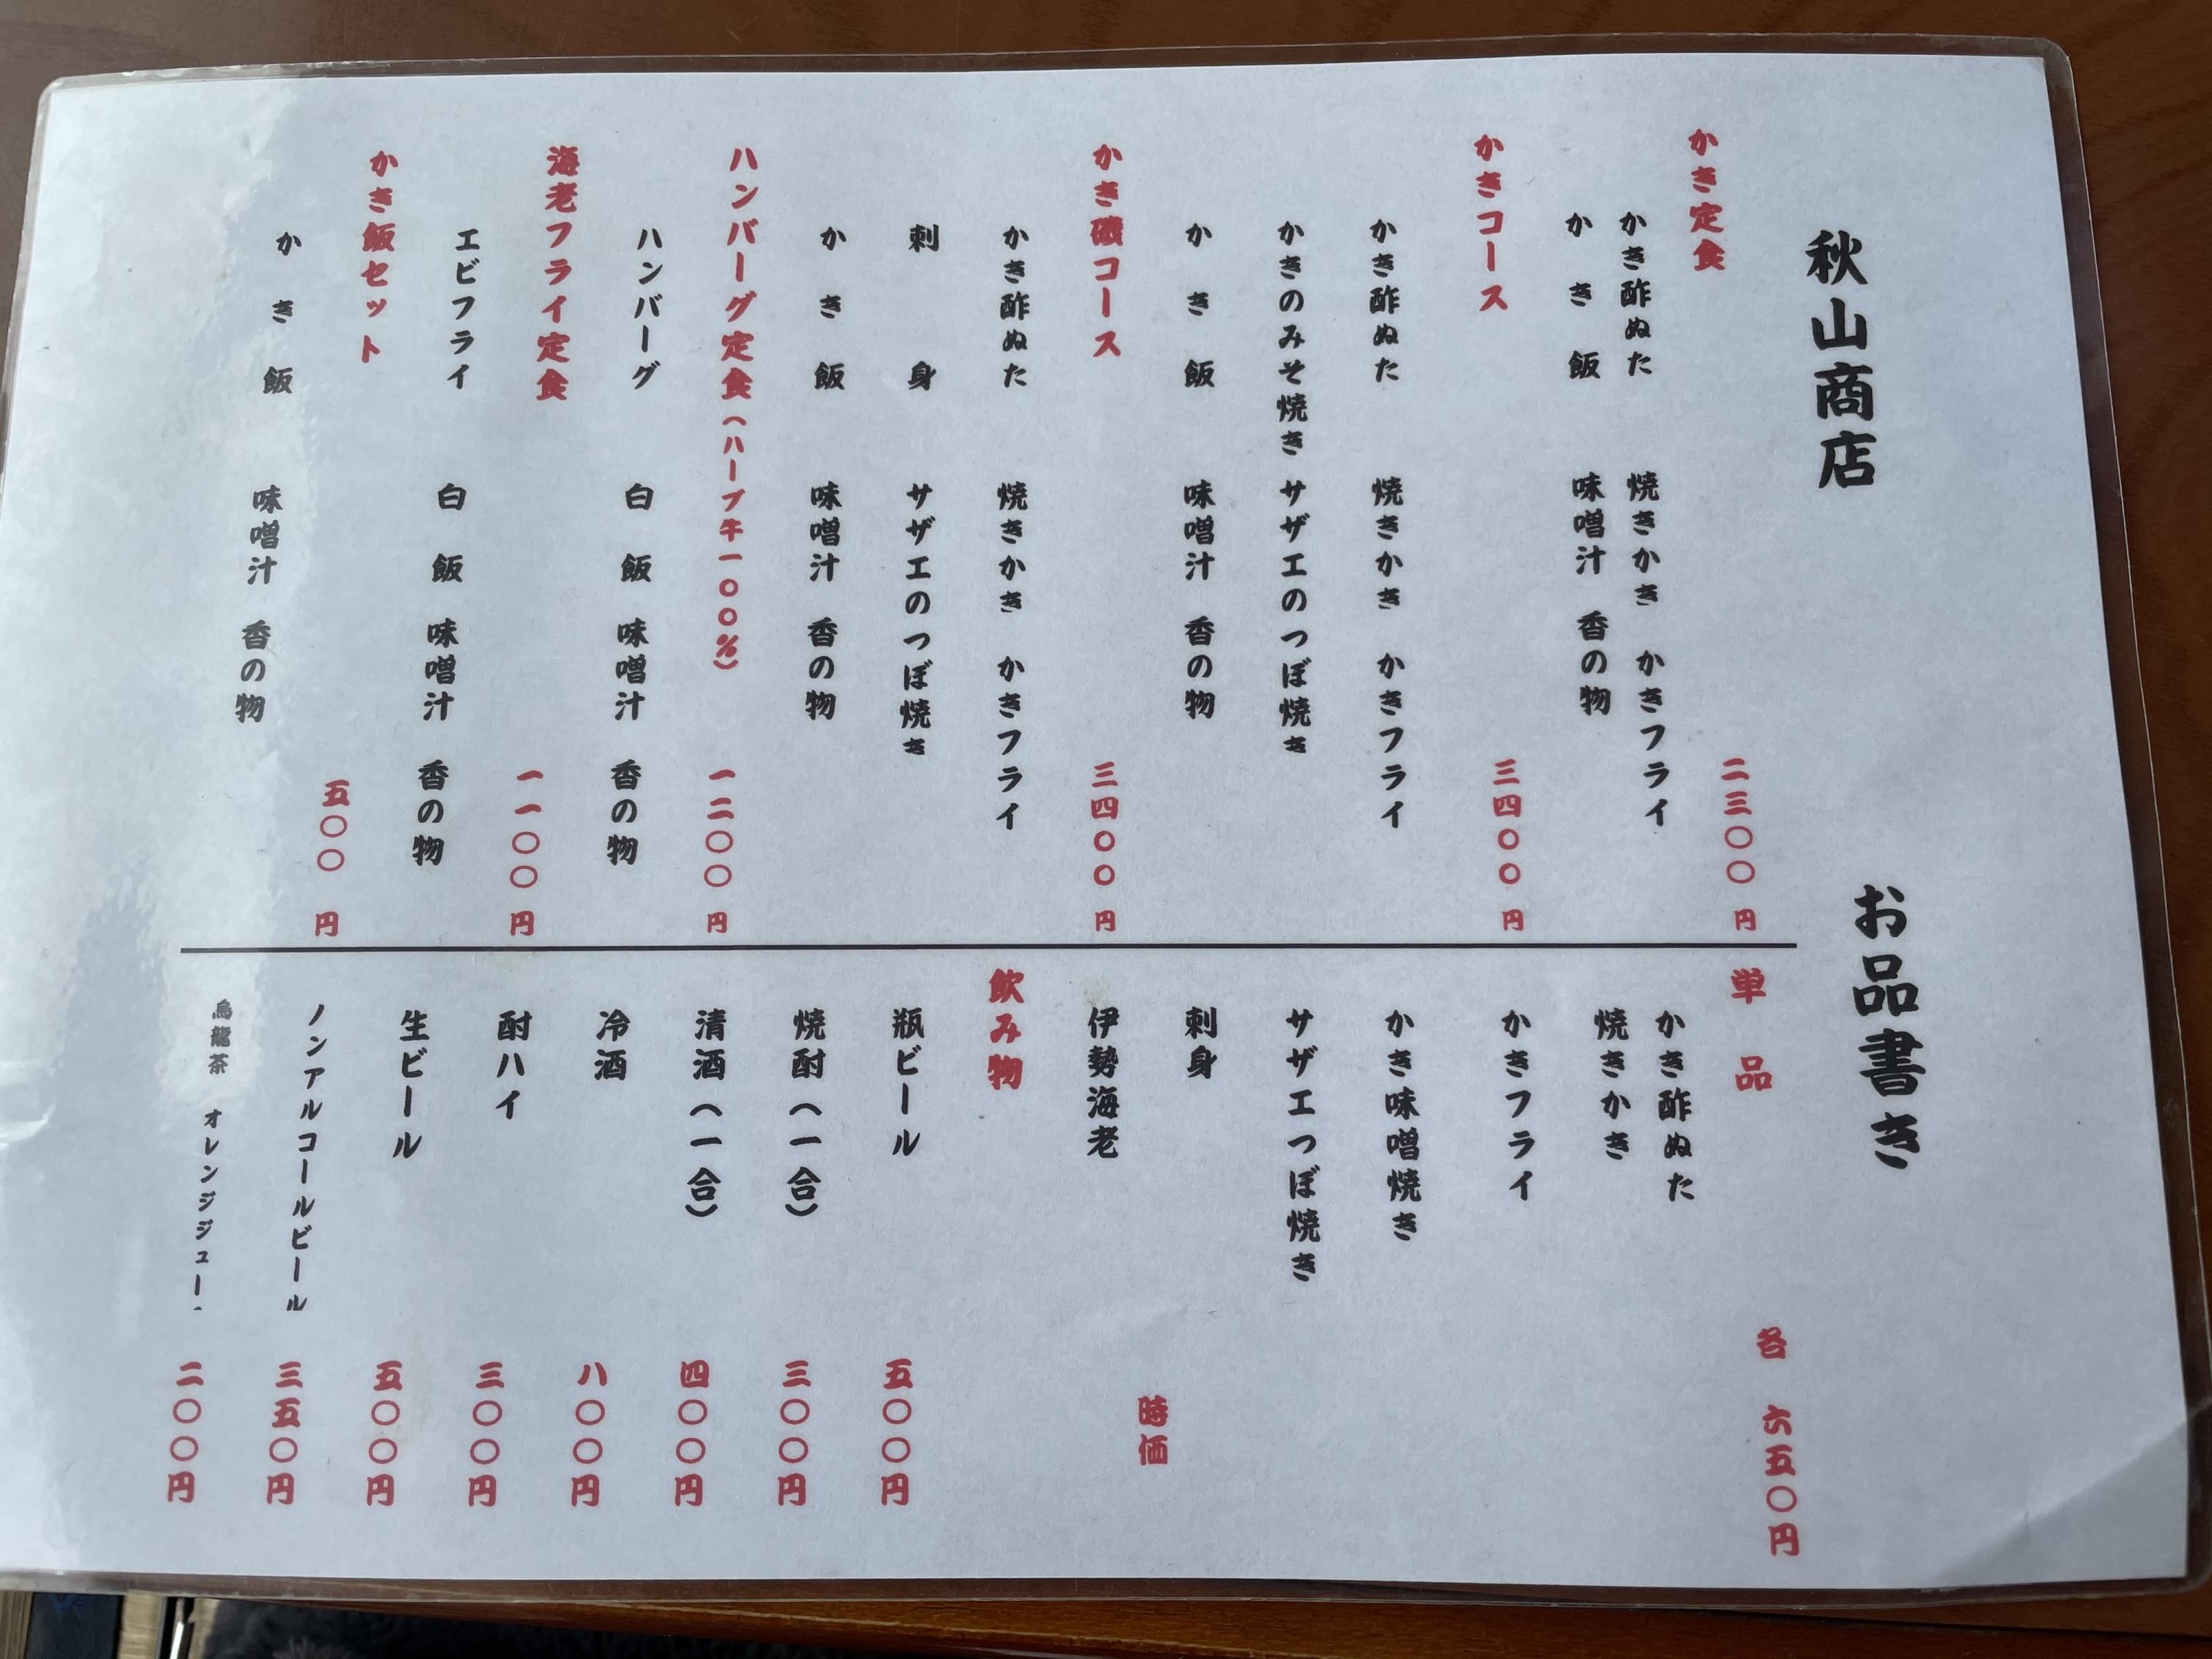 秋山商店 お品書き
かき定食 二三〇〇円
かき酢ぬた 焼きかき かきフライ
かき飯 味噌汁 香の物
かきコース 三四〇〇円
かき酢ぬた 焼きかき かきフライ
かきのみそ焼き サザエのつぼ焼き
かき飯 味噌汁 香の物
かき磯コース 三四〇〇円
かき酢ぬた 焼きかき かきフライ
刺身 サザエのつぼ焼き
かき飯 味噌汁 香の物
ハンバーグ定食(ハーブ牛一〇〇%) 一二〇〇円
ハンバーグ 白飯 味噌汁 香の物
海老フライ定食 一一〇〇円
エビフライ 白飯 味噌汁 香の物
かき飯セット 五〇〇円
かき飯 味噌汁 香の物
単品 各 六五〇円
かき酢ぬた
焼きかき
かきフライ
かき味噌焼き
サザエつぼ焼き
刺身
時価
伊勢海老
飲み物
瓶ビール 五〇〇円
焼酎(一合) 三〇〇円
清酒(一合) 四〇〇円
冷酒 八〇〇円
酎ハイ 三〇〇円
生ビール 五〇〇円
ノンアルコールビール 三五〇円
烏龍茶 オレンジジュー 二〇〇円